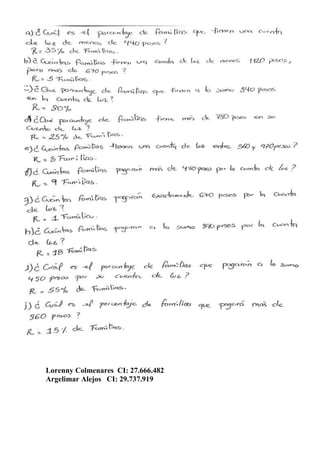 a) ¿Cuál es el porcentaje de familias que tienen una cuenta
de luz de menos de 440 pesos?
R = 35% de Familias.
b) ¿Cuántas familias tienen una cuenta de luz de menos 1120 pesos,
pero más de 670 pesos?
R = 5 Familias.
¿Qué porcentaje de familias que tienen a lo sumo 840 pesos
en la cuenta de luz?
R = 80%
d) ¿Qué porcentaje de familia tiene más de 750 pesos en su
cuenta de luz?
R = 25% de Familias.
e) ¿Cuántas familias tienen un cuenta de luz entre 560 y 970 pesos?
R = 5 Familias.
f) ¿Cuántas familias pagaron más de 450 pesos por la cuenta de luz?
R = 9 Familias.
g) ¿Cuántas familias pagarán exactamente 670 pesos por la cuenta
de luz?
R = 1 Familia.
h) ¿Cuántas familias pagaron a lo sumo 890 pesos por la cuenta
de luz?
R = 18 Familias.
¿Cuál es el porcentaje de familias que pagarán a lo sumo
450 pesos por su cuenta de luz?
R = 55% de Familias.
j) ¿Cuál es el porcentaje de familias que pagará más de
960 pesos?
R = 15% de Familias.
Lorenny Colmenares CI: 27.666.482
Argelimar Alejos CI: 29.737.919